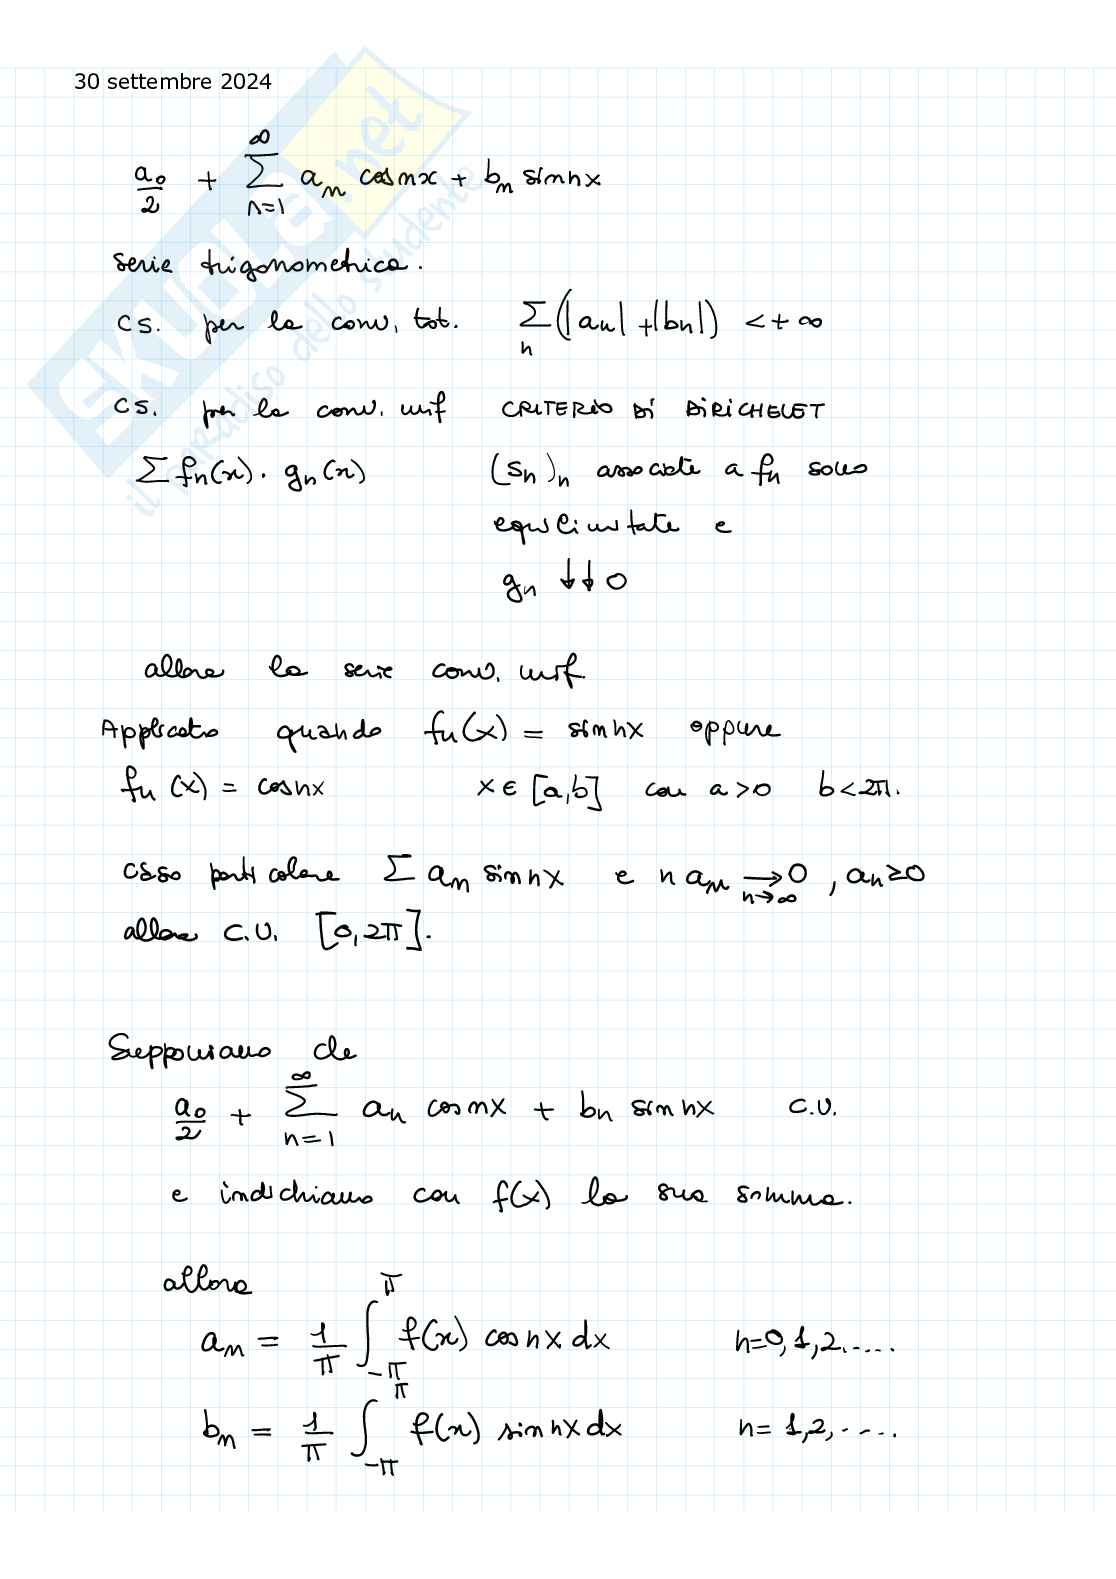 30 settembre 2024
a₀/2 + ∑_{n=1}^{∞} aₙ cosnx + bₙ sinnx
serie trigonometrica.
CS. per la conv. tot. ∑_n (|aₙ|+|bₙ|) < +∞
CS. per la conv. unif CRITERIO DI DIRICHELET
∑ fₙ(x) · gₙ(x) (Sₙ)ₙ associate a fₙ sono
equilimitate e
gₙ ↓↓ 0
allora la serie conv. unif.
Applicato quando fₙ(x) = sinnx oppure
fₙ(x) = cosnx x ∈ [a,b] con a>0 b<2π.
caso particolare ∑ aₙ sinnx e n aₙ →_{n→∞} 0, aₙ≥0
allora C.U. [0,2π].
Supponiamo che
a₀/2 + ∑_{n=1}^{∞} aₙ cosnx + bₙ sinnx C.U.
e indichiamo con f(x) la sua somma.
allora
aₙ = 1/π ∫_{-π}^{π} f(x) cosnx dx n=0,1,2.....
bₙ = 1/π ∫_{-π}^{π} f(x) sinnx dx n= 1,2,.....
SKUOLA.net
il paradiso dello studente